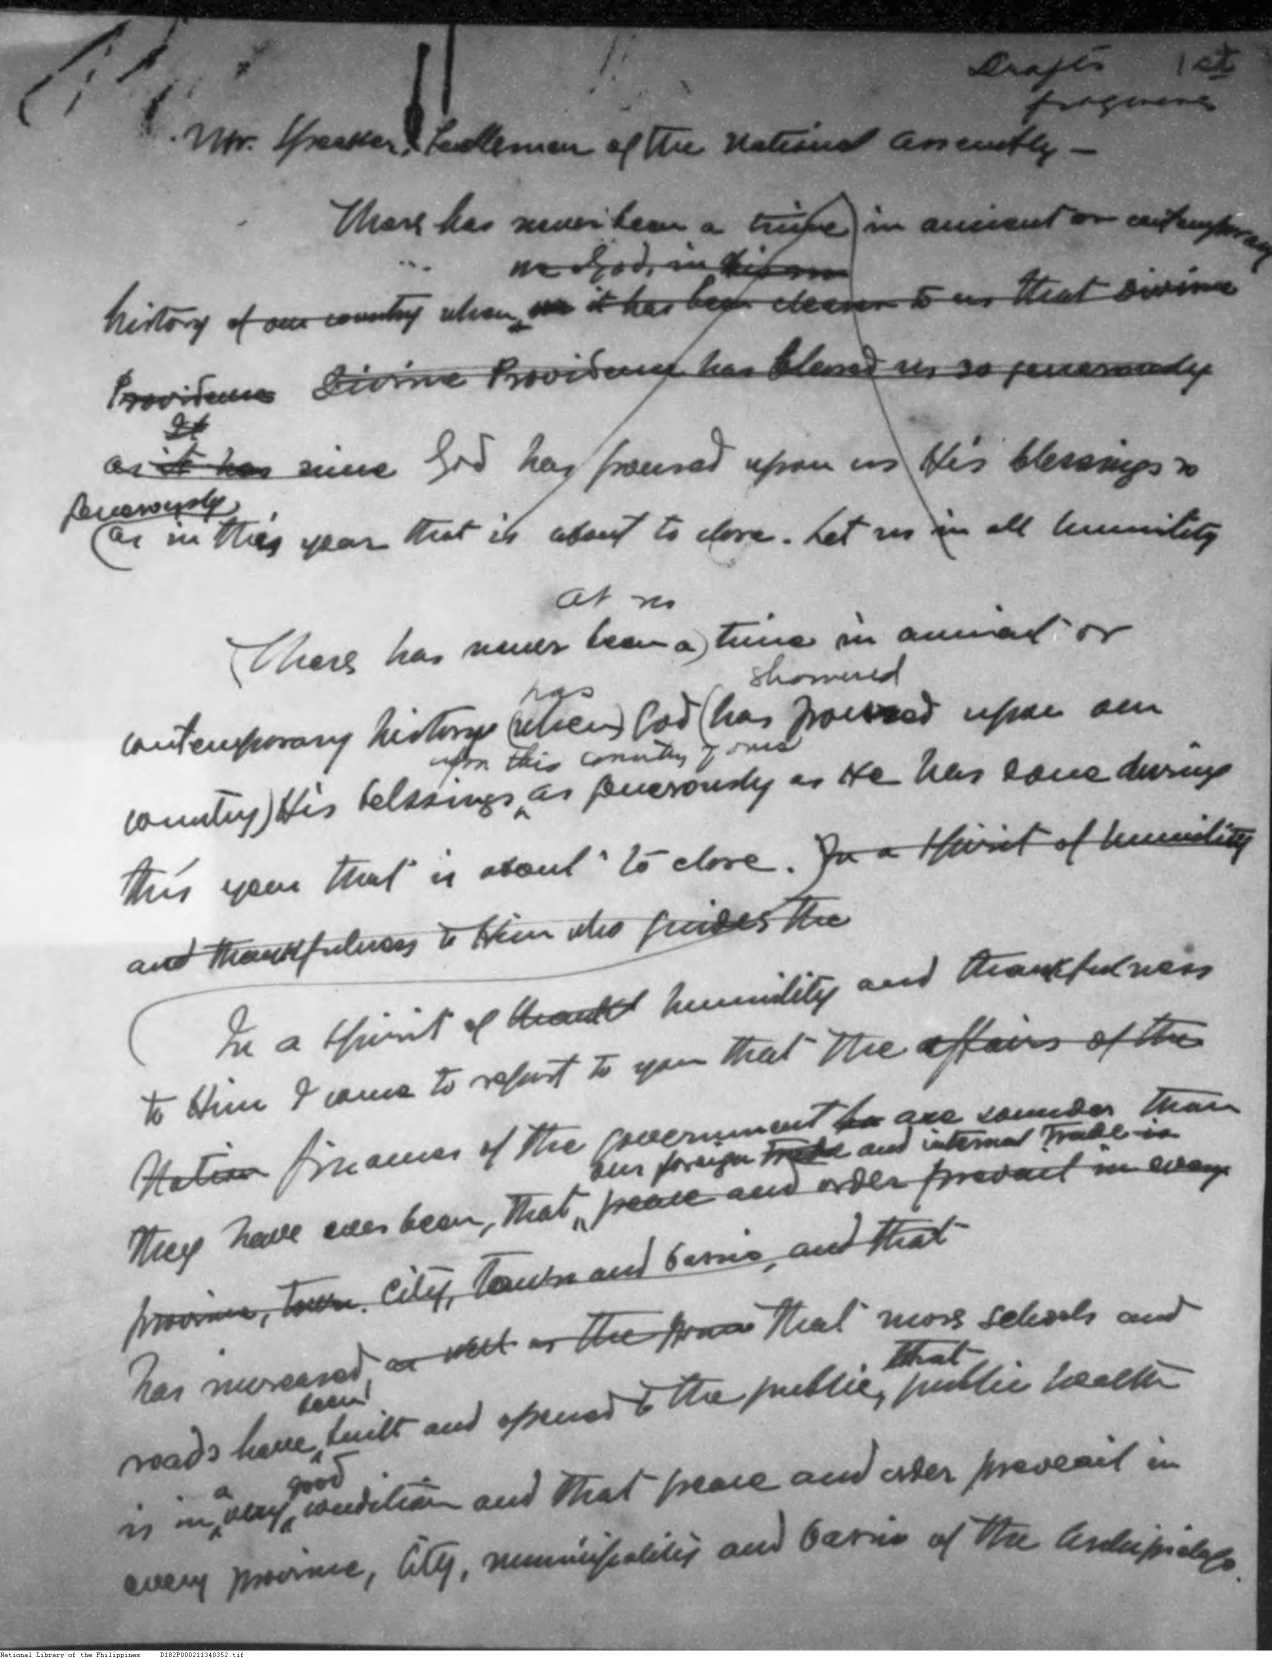 Drafts 1st
fragments
Mr. Speaker, Gentlemen of the National Assembly —
There has never been a time in ancient or contemporary
we God, in
history of our country when it has been clearer to us that Divine
Providence Divine Providence has blessed us so generously
It
as it has since God has poured upon us His blessings so
generously
as in this year that is about to close. Let us in all humility
At no
There has never been a time in ancient or
has showered
contemporary history (when) God (has poured upon our
upon this country of ours
country) His belssings as generously as He has done during
this year that is about to close. In a spirit of humility
and thankfulness to Him who guides the
In a spirit of thankf humility and thankfulness
to Him I come to report to you that the affairs of the
Nation finances of the government ha are sounder than
our foreign trade and internal trade is
they have ever been, that peace and order prevail in every
province, town, city, town and barrio, and that
has increased, as well as the that more schools and
been that
roads have built and opened to the public, public health
a good
is in very condition and that peace and order preveail in
every province, city, municipalitis and barrio of the Archipielago.
National Library of the Philippines D182P000211340352.tif